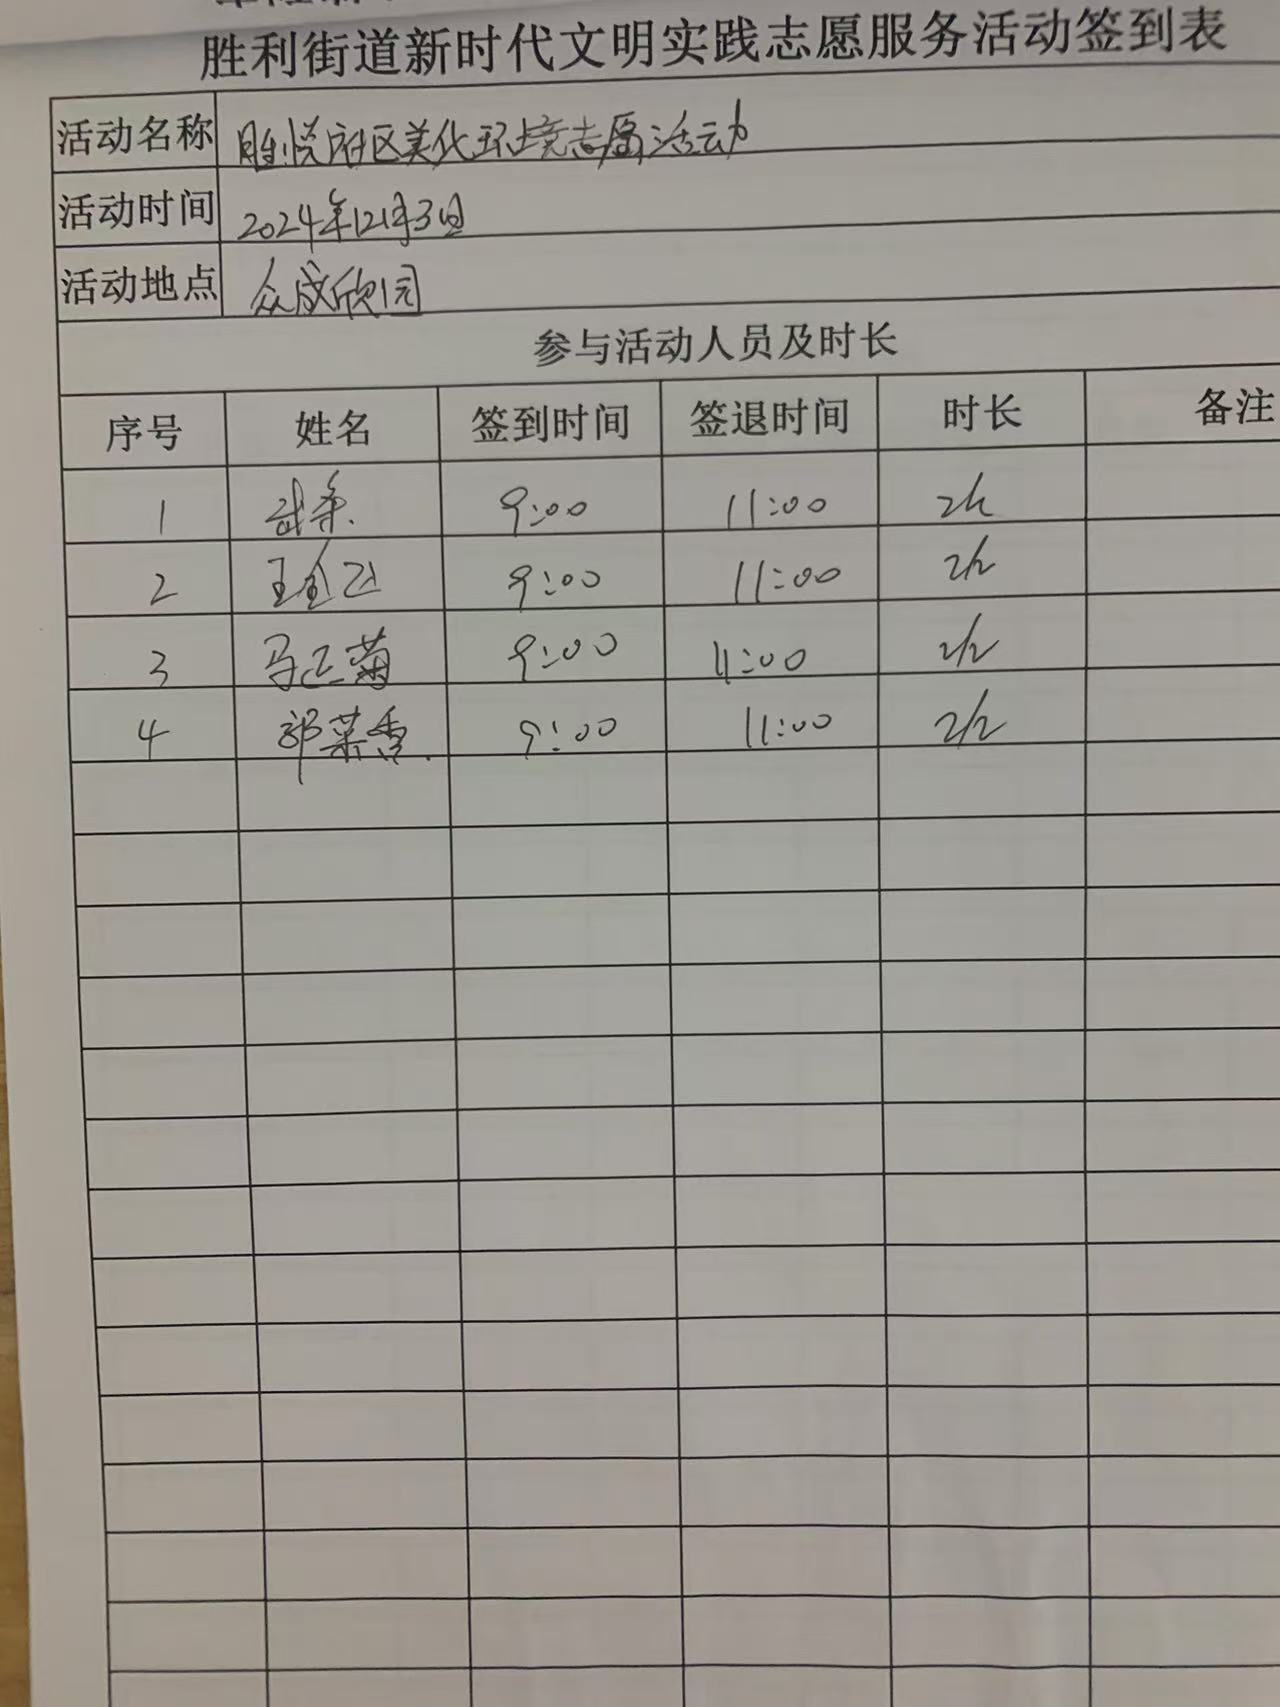 胜利街道新时代文明实践志愿服务活动签到表
活动名称 胜悦府区美化环境志愿活动
活动时间 2024年12月3日
活动地点 众成欣园
参与活动人员及时长
序号 姓名 签到时间 签退时间 时长 备注
1 武 9:00 11:00 2h
2 王 9:00 11:00 2h
3 马正菊 9:00 11:00 2h
4 郭菜香 9:00 11:00 2h